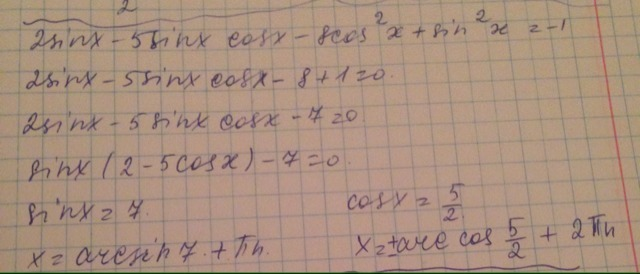 2
2sinx - 5sinx cosx - 8cos²x + sin²x = -1
2sinx - 5sinx cosx - 8 + 1 = 0.
2sinx - 5sinx cosx - 7 = 0
sinx (2 - 5cosx) - 7 = 0.
sinx = 7. cosx = 5/2
x = arcsin 7. + πn. x = ± arc cos 5/2 + 2πn